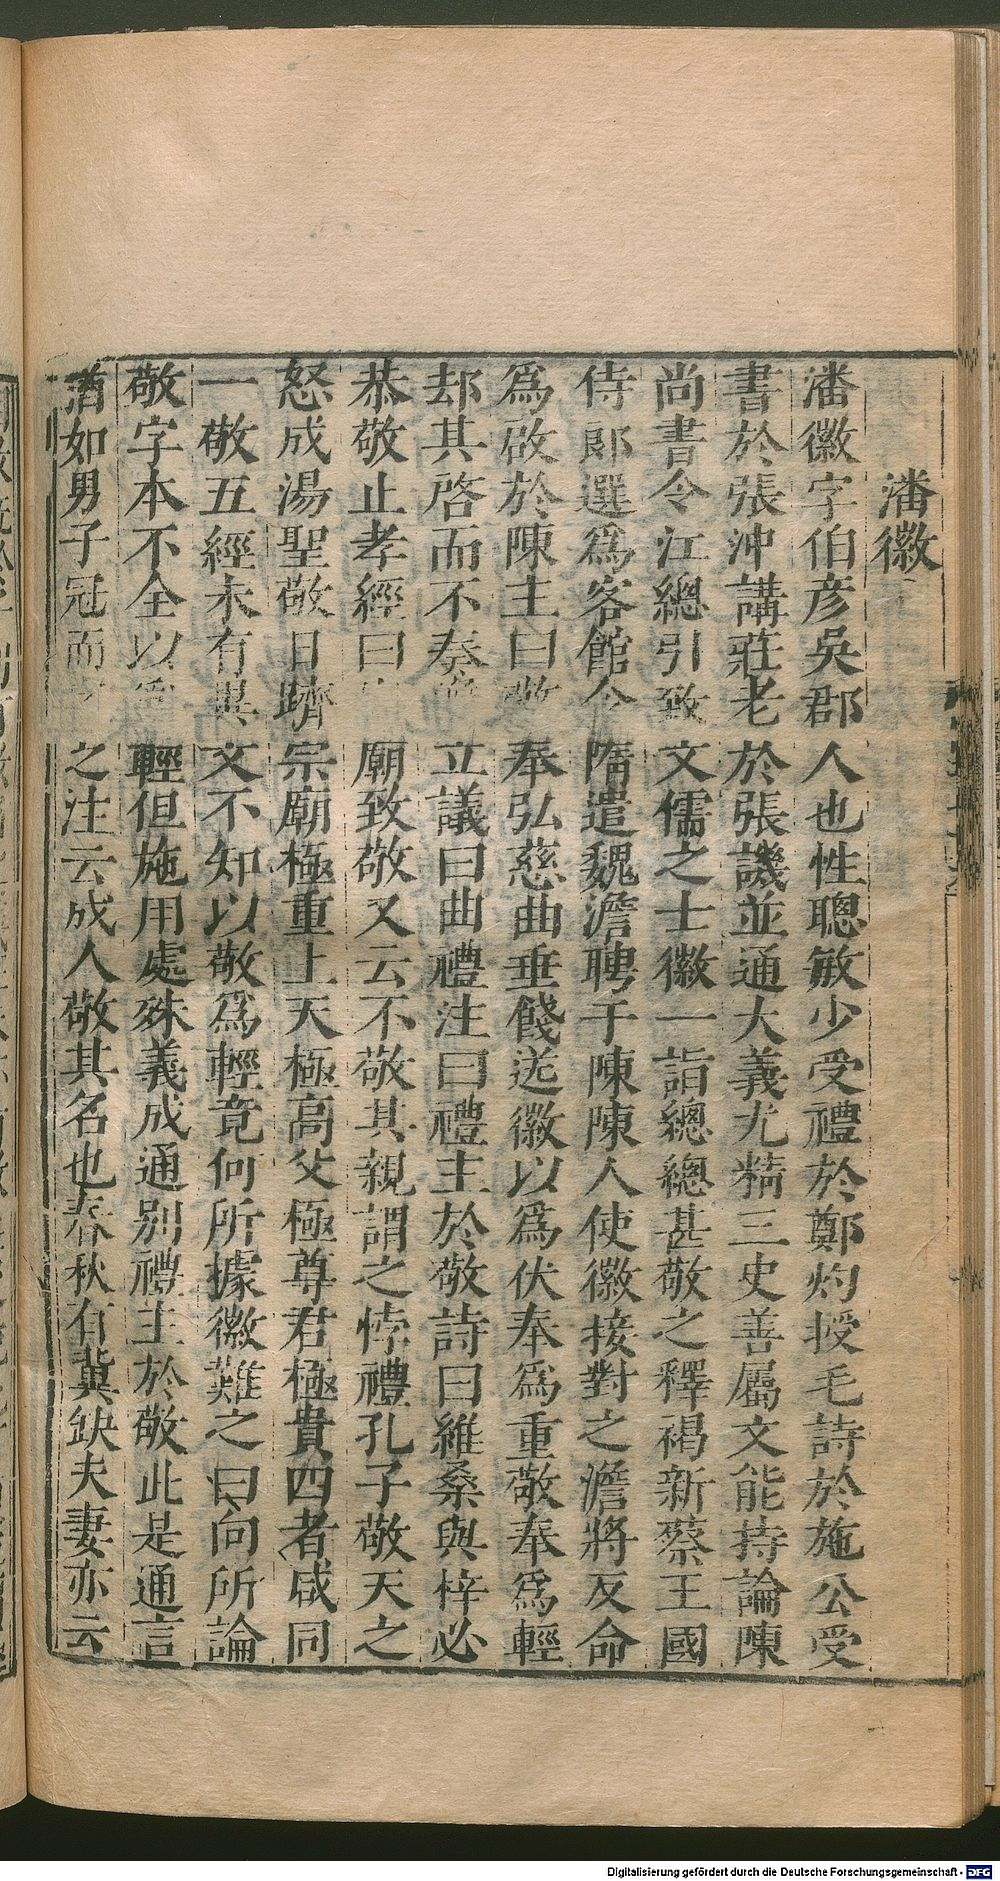 潘徽
潘徽字伯彦吳郡人也性聰敏少受禮於鄭灼授毛詩於施公受
書於張沖講莊老於張譏並通大義尤精三史善屬文能持論陳
尚書令江總引致文儒之士徽一詣總總甚敬之釋褐新蔡王國
侍郎選爲客館令隋遣魏澹聘于陳陳人使徽接對之澹將反命
爲啟於陳主曰敬奉弘慈曲垂餞送徽以爲伏奉爲重敬奉爲輕
却其啓而不奏立議曰曲禮注曰禮主於敬詩曰維桑與梓必
恭敬止孝經曰廟致敬又云不敬其親謂之悖禮孔子敬天之
怒成湯聖敬日躋宗廟極重上天極高父極尊君極貴四者咸同
一敬五經未有異文不知以敬爲輕竟何所據徽難之曰向所論
敬字本不全以爲輕但施用處殊義成通別禮主於敬此是通言
猶如男子冠而之注云成人敬其名也春秋有冀缺夫妻亦云
Digitalisierung gefördert durch die Deutsche Forschungsgemeinschaft - DFG